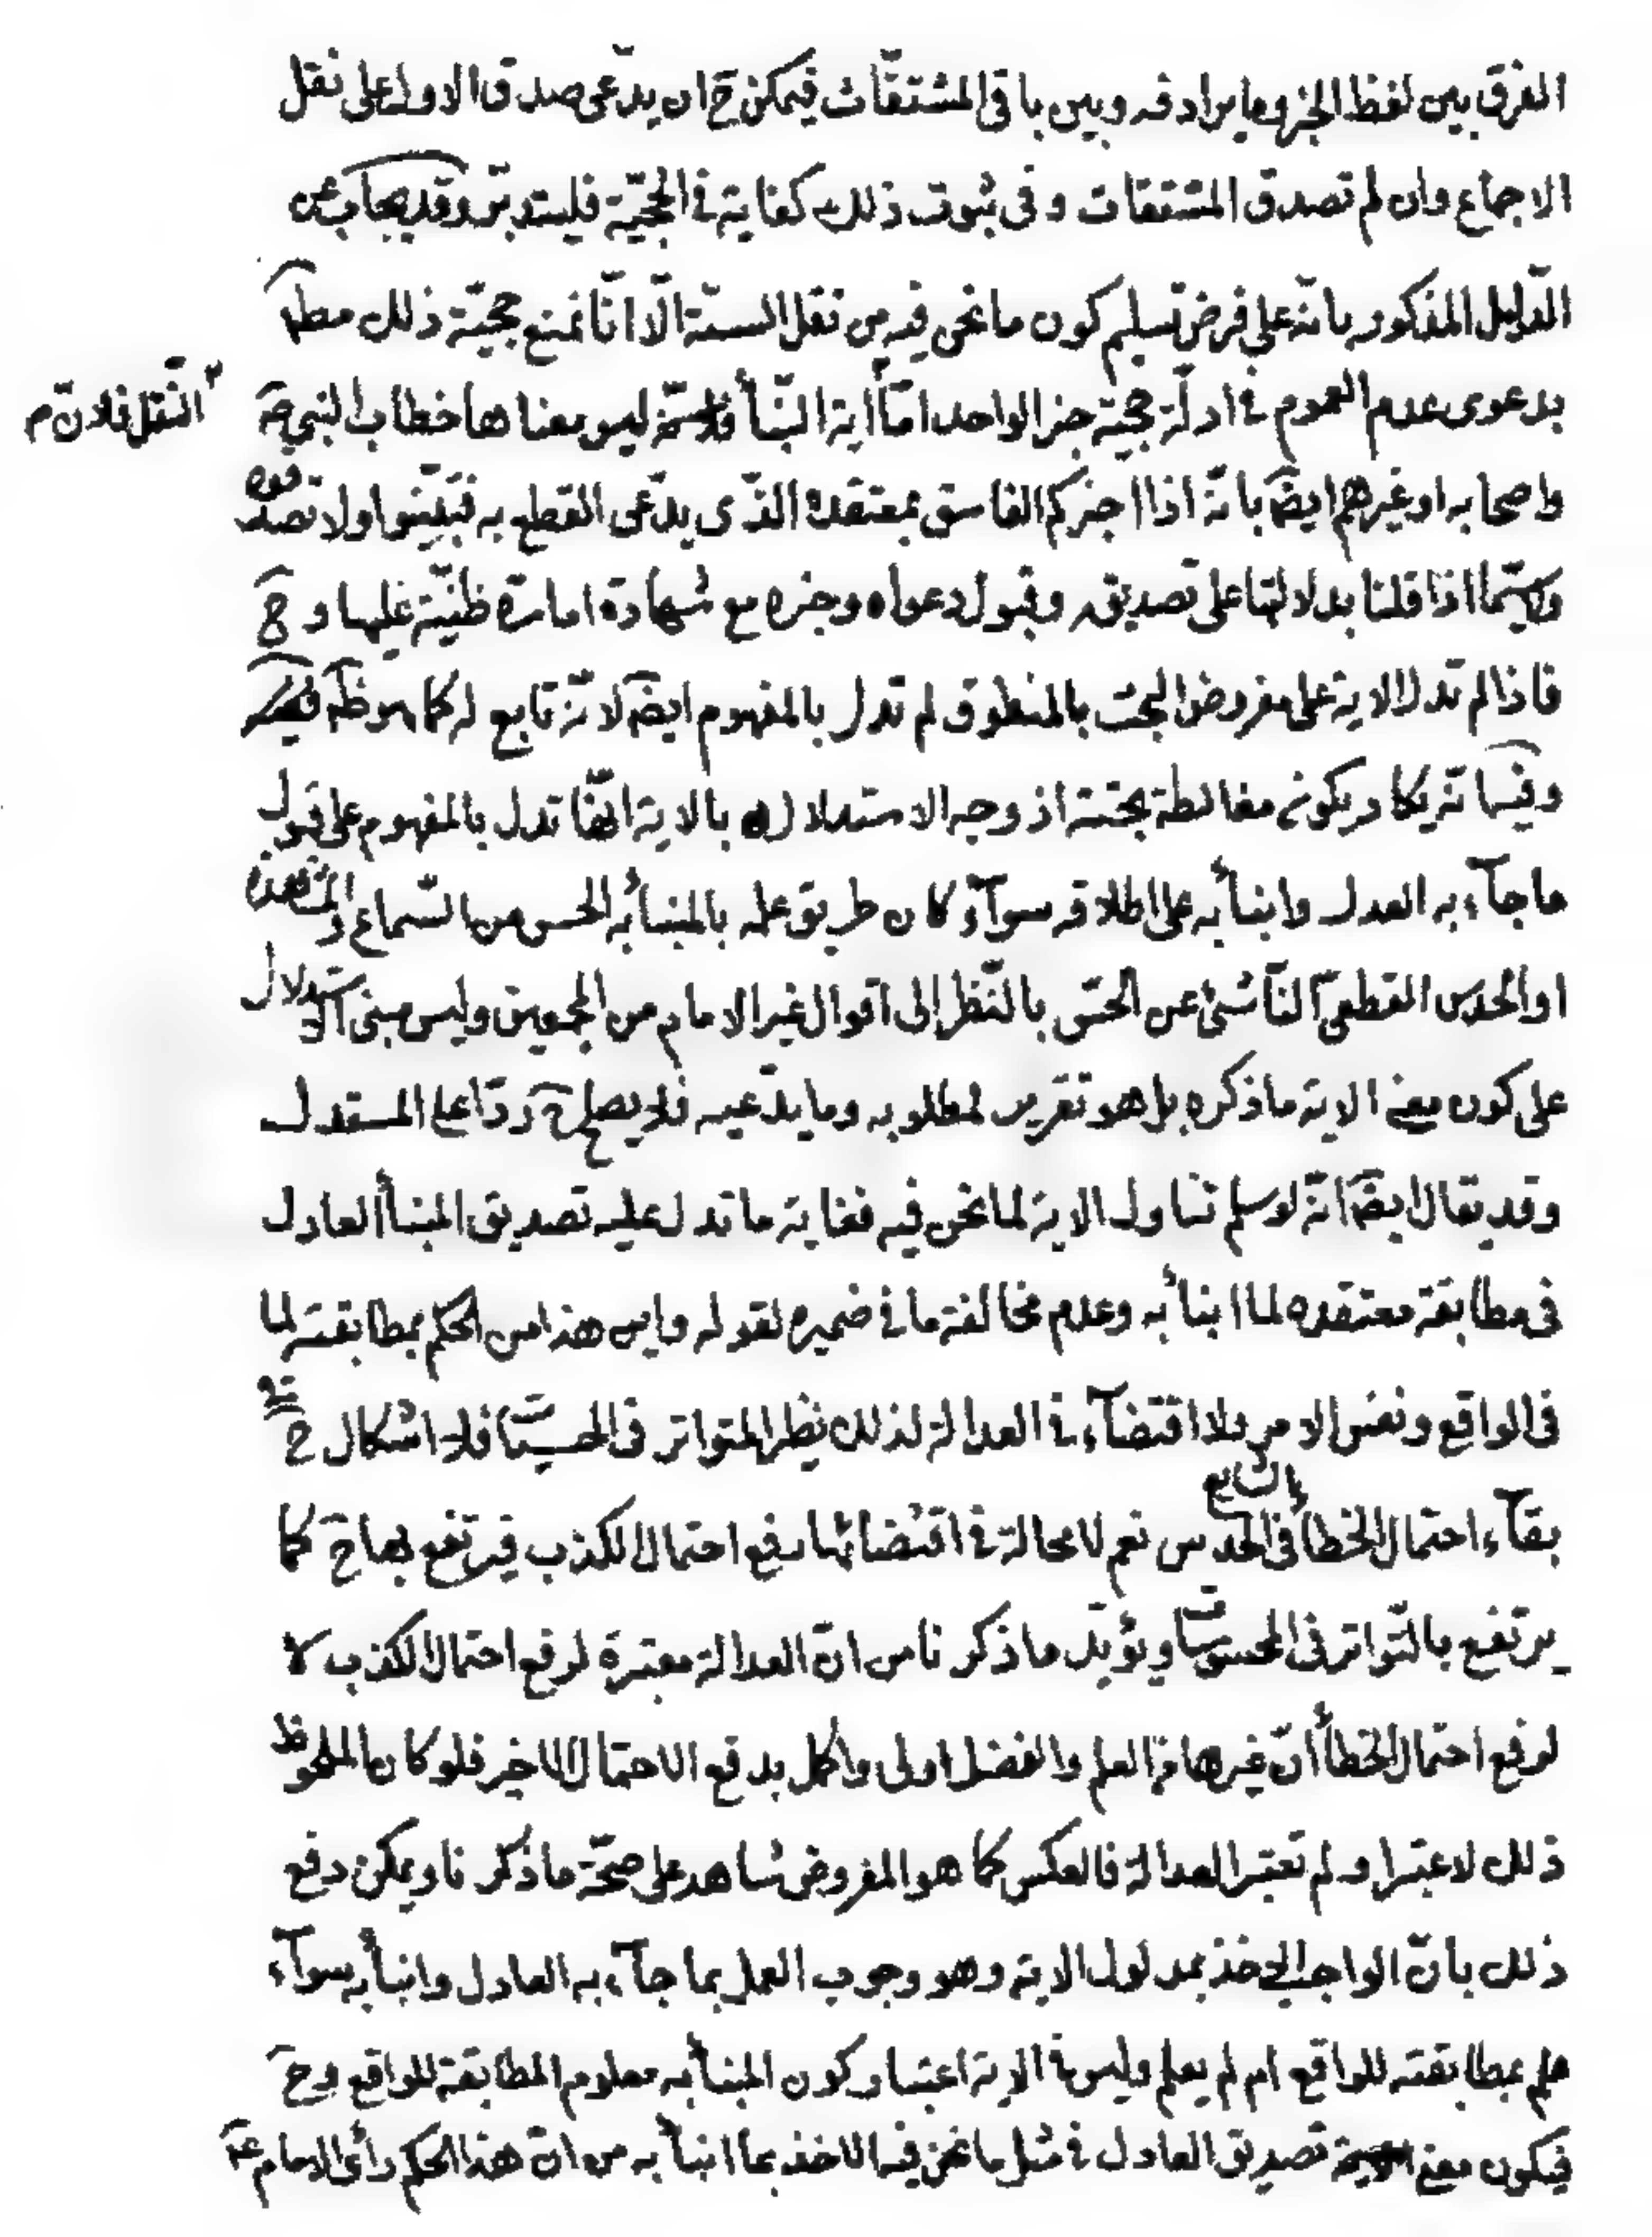 الفرق بين لفظ الخبر وما يرادفه وبين باقى المشتقّات فيمكن ح ان يدّعى صدق الاول على نقل
الاجماع وان لم تصدق المشتقات وفى ثبوت ذلك كفاية فى الحجيّة فليتدبّر وقد يجاب عن
الدّليل المذكور بانّه على فرض تسليم كون ما نحن فيه من نقل السنّة الّا انّا نمنع حجيّة ذلك مط
بدعوى عدم العموم فى ادلّة حجيّة خبر الواحد امّا اية النّبأ ليس معناها خطاب النبي ص
النقل فلانّ م
واصحابه او غيرهم ايضا بانّه اذا اخبركم الفاسق بمعتقده الذّى يدّعى القطع به فتبيّنوا ولا تصدقوه
وكيّما اذا قلنا بدلالتها على تصديقه وقبول دعواه وخبره مع شهادة امارة ظنيّة عليها و ح
فاذا لم تدل الاية على مفروض البحث بالمنطوق لم تدل بالمفهوم ايضا لانّه تابع له كما هو ظ
وفيه انّه يكاد يكون مغالطة بحتة اذ وجه الاستدلال بالاية انّها تدل بالمفهوم على قبول
ما جآء به العدل وانبأ به على اطلاقه سوآء كان طريق علمه بالمنبأ به الحس من السّماع والمشاهدة
او الحدس القطعىّ النّاشئ عن الحسّ بالنّظر إلى اقوال غير الامام من المجمعين وليس مبنى الاستدلال
على كون معنى الاية ما ذكره بل هو تقرير لمطلوبه وما يدّعيه فلا يصلح ح ردّا على المستدل
وقد يقال ايضا انّه لو سلم تناول الاية لما نحن فيه فغاية ما تدل عليه تصديق المنبأ العادل
فى مطابقة معتقده لما انبأ به وعدم مخالفة ما فى ضميره لقوله واين هذا من الحكم بمطابقته لما
فى الواقع ونفس الامر ولا اقتضآء فى العدالة لذلك نظير المتواتر فى الحسيّات فلا اشكال ح فى
بقآء احتمال الخطأ فى الحدس نعم لا محالة فى اقتضائها رفع احتمال الكذب فيرتفع بها ح كما
يرتفع بالتّواتر فى المحسوسات ويؤيّد ما ذكرنا من انّ العدالة معتبرة لرفع احتمال الكذب لا
لرفع احتمال الخطأ انّ غيرها من العلم والفضل اولى واكمل بدفع الاحتمال الاخير فلو كان الملحوظ
ذلك لاعتبرا ولم تعتبر العدالة فالعكس كما هو المفروض شاهد على صحّة ما ذكرنا ويمكن دفع
ذلك بانّ الواجب الاخذ بمدلول الاية وهو وجوب العمل بما جآء به العادل وانبأ به سوآء
علم بمطابقته للواقع ام لم يعلم وليس فى الاية اعتبار كون المنبأ به معلوم المطابقة للواقع وح
فيكون معنى تصديق العادل فى مثل ما نحن فيه الاخذ بما انبأ به من انّ هذا الحكم رأى الامام ع